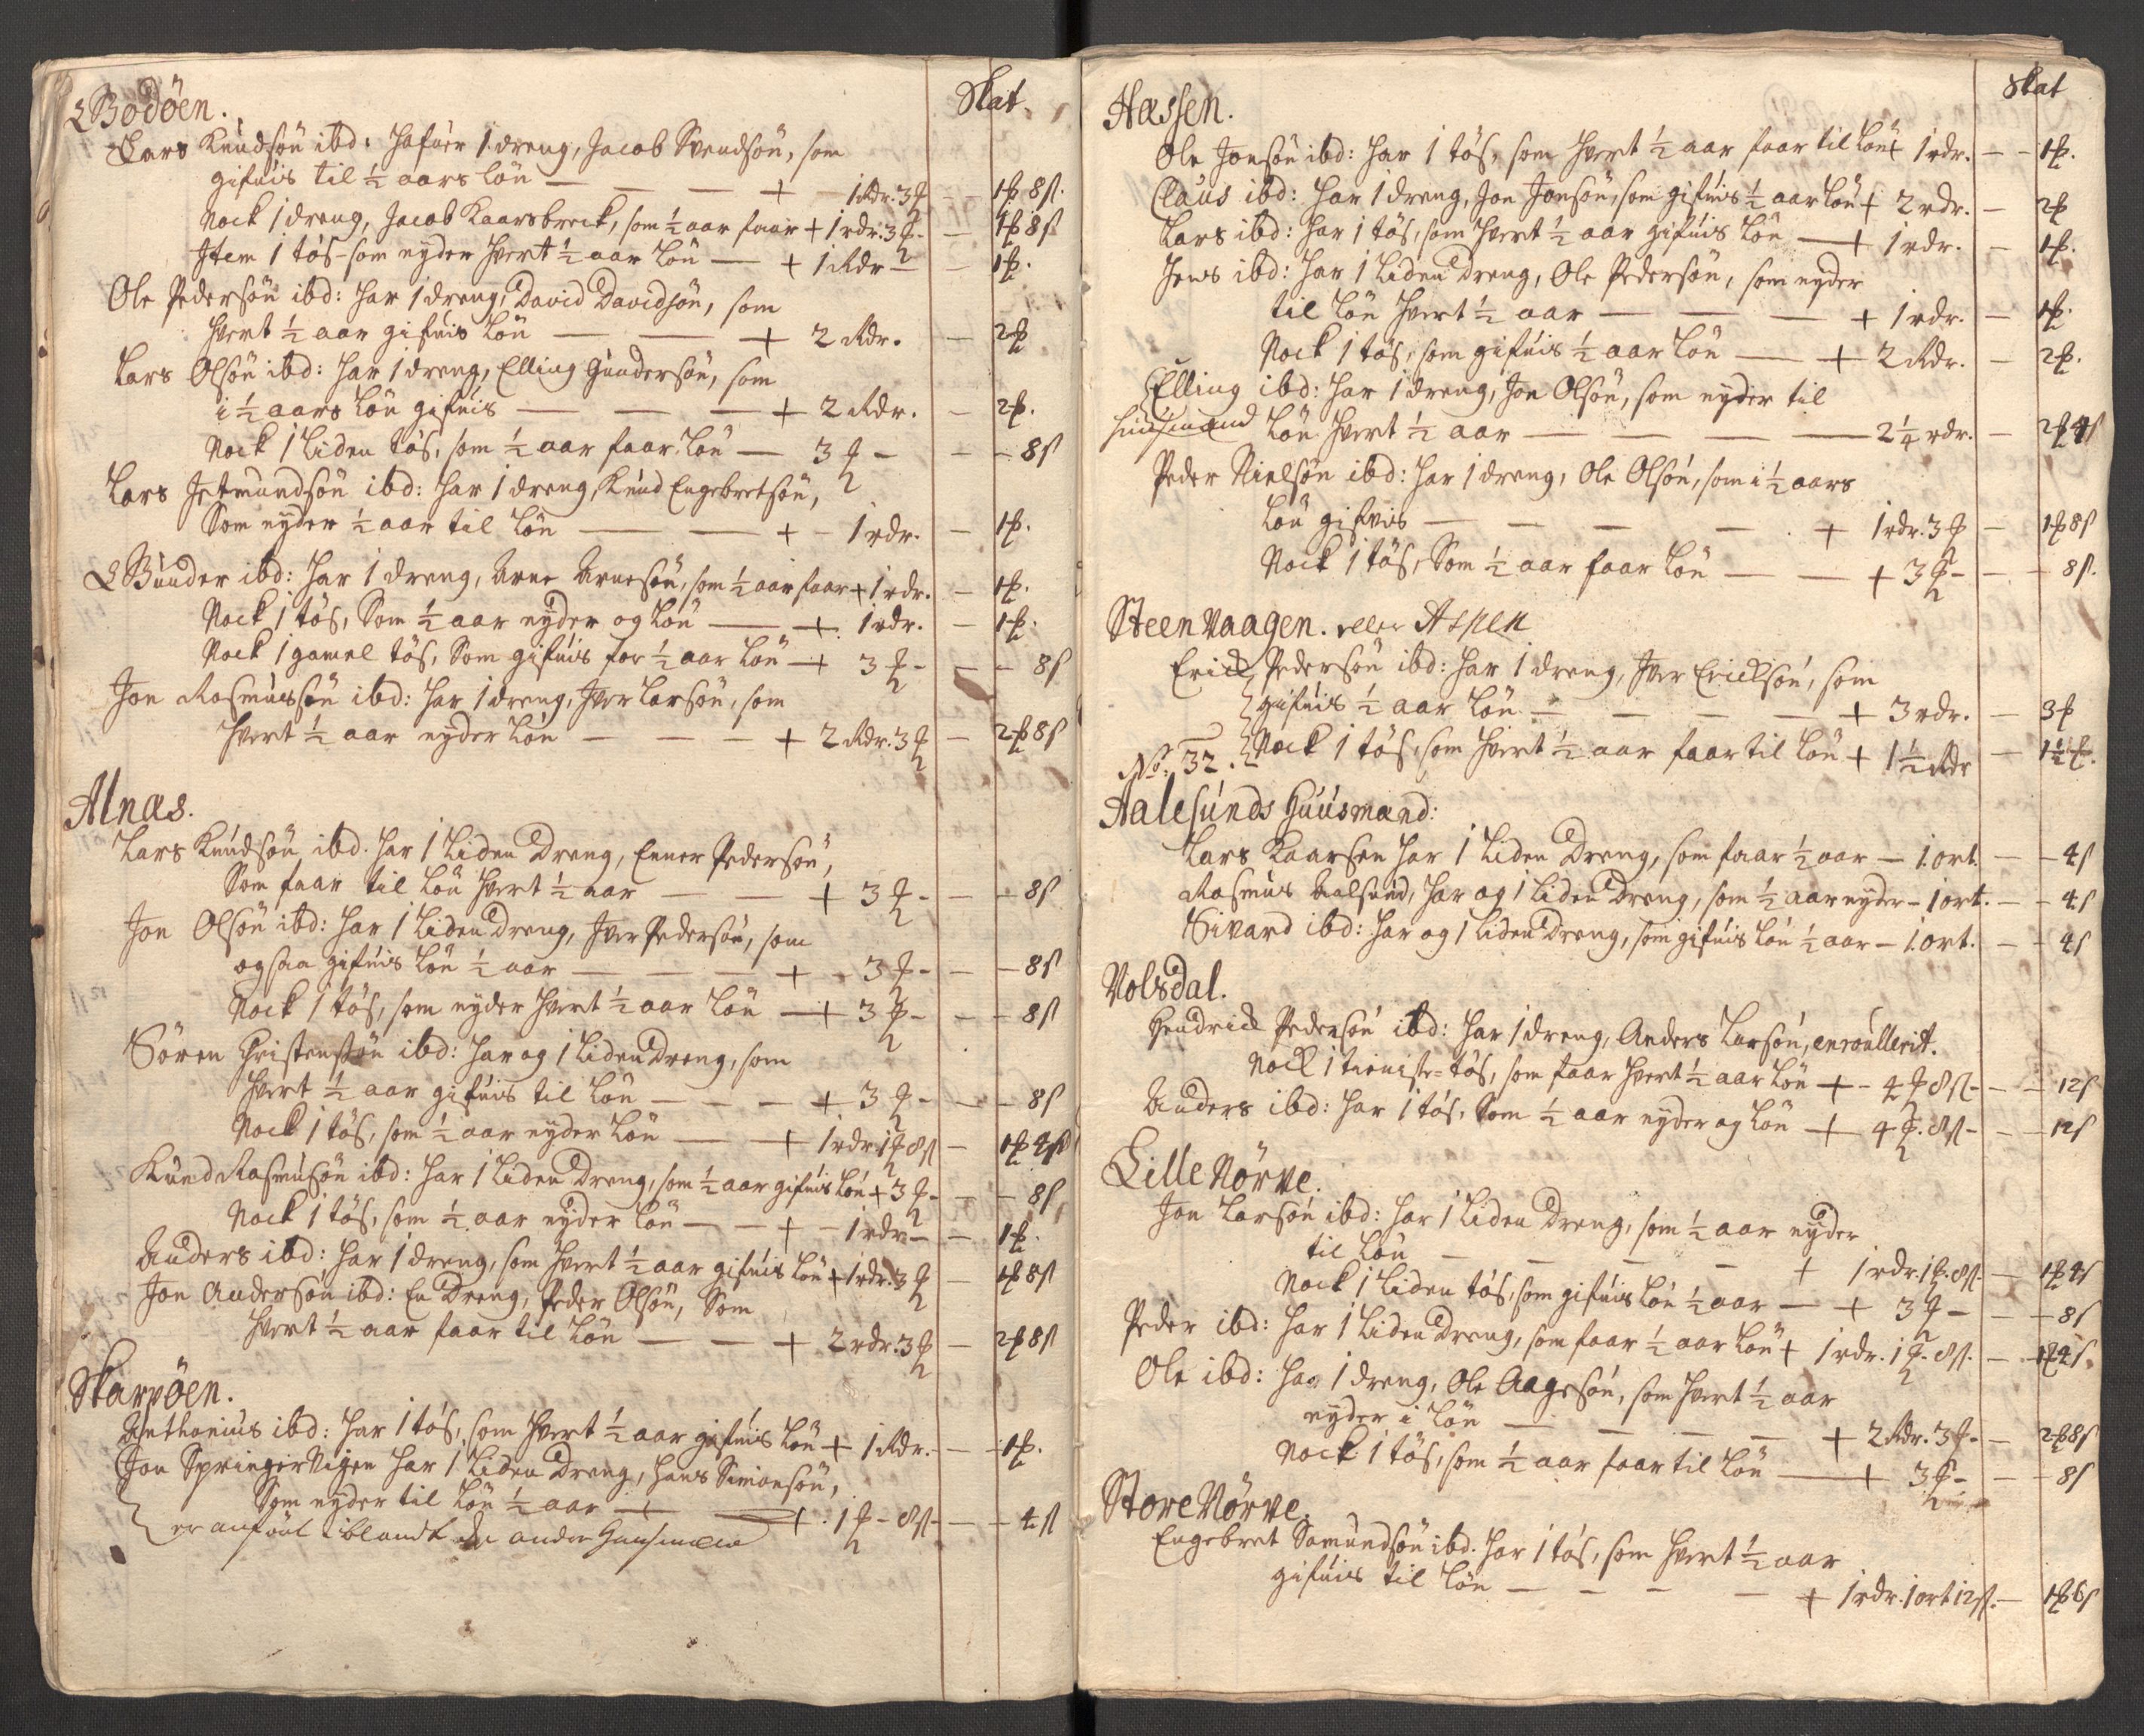 Bodöen.
Skat.
Lars Knudsön ibd: hafuer 1 dreng, Jacob Svendsön, som
gifuis til ½ aars Lön — — — + 1 Rdr. 3 ℔ — 1 ℔ 8 s.
Nock 1 dreng, Jacob Kaarsbreck, som ½ aar faar + 1 rdr. 3 ℔ — 1 ℔ 8 s
Item 1 tös som nyder hvert ½ aar Lön — + 1 Rdr — — 1 ℔.
Ole Pedersön ibd: har 1 dreng, David Davidsön, som
hvert ½ aar gifuis Lön — — + 2 Rdr. — 2 ℔
Lars Olsön ibd: har 1 dreng, Elling Gundersön, som
i ½ aars Lön gifuis — — — + 2 Rdr. — 2 ℔.
Nock 1 Liden tös, som ½ aar faar Lön — 3 ℔ — — 8 s
Lars Jetmundsön ibd: har 1 dreng, Knud Engebretsön,
Som nyder ½ aar til Lön — — + - 1 rdr. — 1 ℔.
Gunder ibd: har 1 dreng, Arne Arnesön, som ½ aar faar + 1 rdr. — 1 ℔.
Nock 1 tös, Som ½ aar nyder og Lön — + 1 rdr. — 1 ℔.
Nock 1 gamel tös, Som gifuis for ½ aar Lön + 3 ℔ — — 8 s
Jon Rasmussön ibd: har 1 dreng, Iver Larsön, som
hvert ½ aar nyder Lön — — — + 2 Rdr. 3 ℔ — 2 ℔ 8 s
Alnæs.
Lars Knudsön ibd. har 1 Liden Dreng, Enner Pedersön,
Som faar til Lön hvert ½ aar — — + 3 ℔ — — 8 s
Jon Olsön ibd: har 1 Liden Dreng, Iver Pedersön, som
ogsaa gifuis Lön ½ aar — — — + 3 ℔ — — 8 s
Nock 1 tös, som nyder hvert ½ aar Lön — + 3 ℔ — — 8 s
Sören Christensön ibd: har og 1 Liden Dreng, som
hvert ½ aar gifuis til Lön — — — + 3 ℔ — — 8 s
Nock 1 tös, som ½ aar nyder Lön — + 1 rdr. 1 ℔ 8 s — 1 ℔ 4 s
Knud Rasmusön ibd: har 1 Liden Dreng, som ½ aar gifuis Lön + 3 ℔ — — 8 s
Nock 1 tös, som ½ aar nyder Lön — — + - 1 rdr — — 1 ℔.
Anders ibd: har 1 dreng, som hvert ½ aar gifuis Lön + 1 rdr. 3 ℔ — 1 ℔ 8 s
Jon Andersön ibd: En Dreng, Peder Olsön, Som
hvert ½ aar faar til Lön — — + 2 rdr. 3 ℔ — 2 ℔ 8 s
Skarvöen.
Anthonius ibd: har 1 tös, som hvert ½ aar gifuis Lön + 1 Rdr. — 1 ℔.
Jon Springer Vigen har 1 Liden Dreng, Hans Simonsön,
Som nyder til Lön ½ aar — + 1 ℔ - 8 s — — 4 s
er anfört iblandt de andre Huusmænd
Skat
Hæssen.
Ole Jonsön ibd: har 1 tös, som hvert ½ aar faar til Lön + 1 rdr. — 1 ℔.
Claus ibd: har 1 dreng, Jon Jonsön, som gifuis ½ aar Lön + 2 rdr. — 2 ℔
Lars ibd: har 1 tös, som hvert ½ aar gifuis Lön — + 1 rdr. — 1 ℔.
Jens ibd: har 1 Liden Dreng, Ole Pedersön, som nyder
til Lön hvert ½ aar — — — + 1 rdr. — 1 ℔.
Nock 1 tös, som gifuis ½ aar Lön — + 2 Rdr. — 2 ℔.
Elling ibd: har 1 dreng, Jon Olsön, som nyder til
huusmand Lön hvert ½ aar — — — — 2¼ rdr. — 2 ℔ 4 s
Peder Nielsön ibd: har 1 dreng, Ole Olsön, som i ½ aars
Lön gifvis — — — — + 1 rdr. 3 ℔ — 1 ℔ 8 s
Nock 1 tös, Som ½ aar faar Lön — — + 3 ℔ — — 8 s.
Steen Vaagen. eller Aspen
Erick Pedersön ibd: har 1 dreng, Iver Ericksön, som
gifuis ½ aar Lön — — — — + 3 rdr. — 3 ℔
No. 32. Nock 1 tös, som hvert ½ aar faar til Lön + 1½ Rdr — 1½ ℔.
Aalesunds Huusmænd:
Lars Kaarsen har 1 Liden Dreng, som faar ½ aar — 1. ort. — — 4 s
Rasmus Aalsund, har og 1 Liden Dreng, som ½ aar nyder — 1 ort. — — 4 s
Sivard ibd: har og 1 Liden Dreng, som gifuis Lön ½ aar — 1. ort. — — 4 s
Volsdal.
Hendrick Pedersön ibd: har 1 dreng, Anders Larsön, enroullerit.
Nock 1 tieniste=tös, som faar hvert ½ aar Lön + - 4 ℔ 8 s — — 12 s
Anders ibd: har 1 tös, Som ½ aar nyder og Lön + 4 ℔. 8 s — — 12 s
Lille Nörve.
Jon Larsön ibd: har 1 Liden Dreng, som ½ aar nyder
til Lön — — — — + 1 rdr. 1 ℔. 8 s — 1 ℔ 4 s
Nock 1 Liden tös, som gifuis Lön ½ aar — + 3 ℔ — — 8 s
Peder ibd: har 1 Liden Dreng, som faar ½ aar Lön + 1 rdr. 1 ℔. 8 s. — 1 ℔ 4 s.
Ole ibd: har 1 dreng, Ole Aagesön, som hvert ½ aar
nyder i Lön — — — — + 2 Rdr. 3 ℔ — 2 ℔ 8 s
Nock 1 tös, som ½ aar faar til Lön — + 3 ℔ — — 8 s
Store Nörve.
Engebret Samundsön ibd. har 1 tös, som hvert ½ aar
gifuis til Lön — — — — + 1 rdr. 1 ort 12 s. — 1 ℔ 6 s